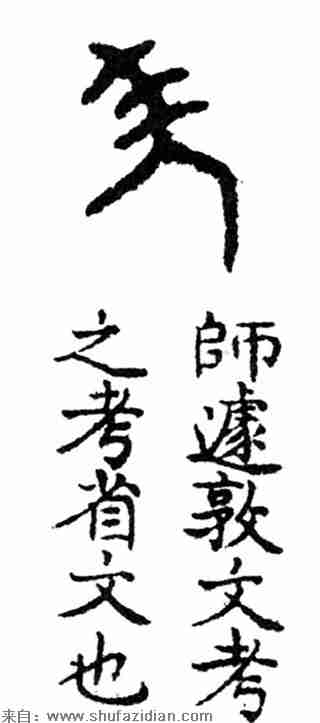 師遽敦文考
之考省文也
来自：www.shufazidian.com